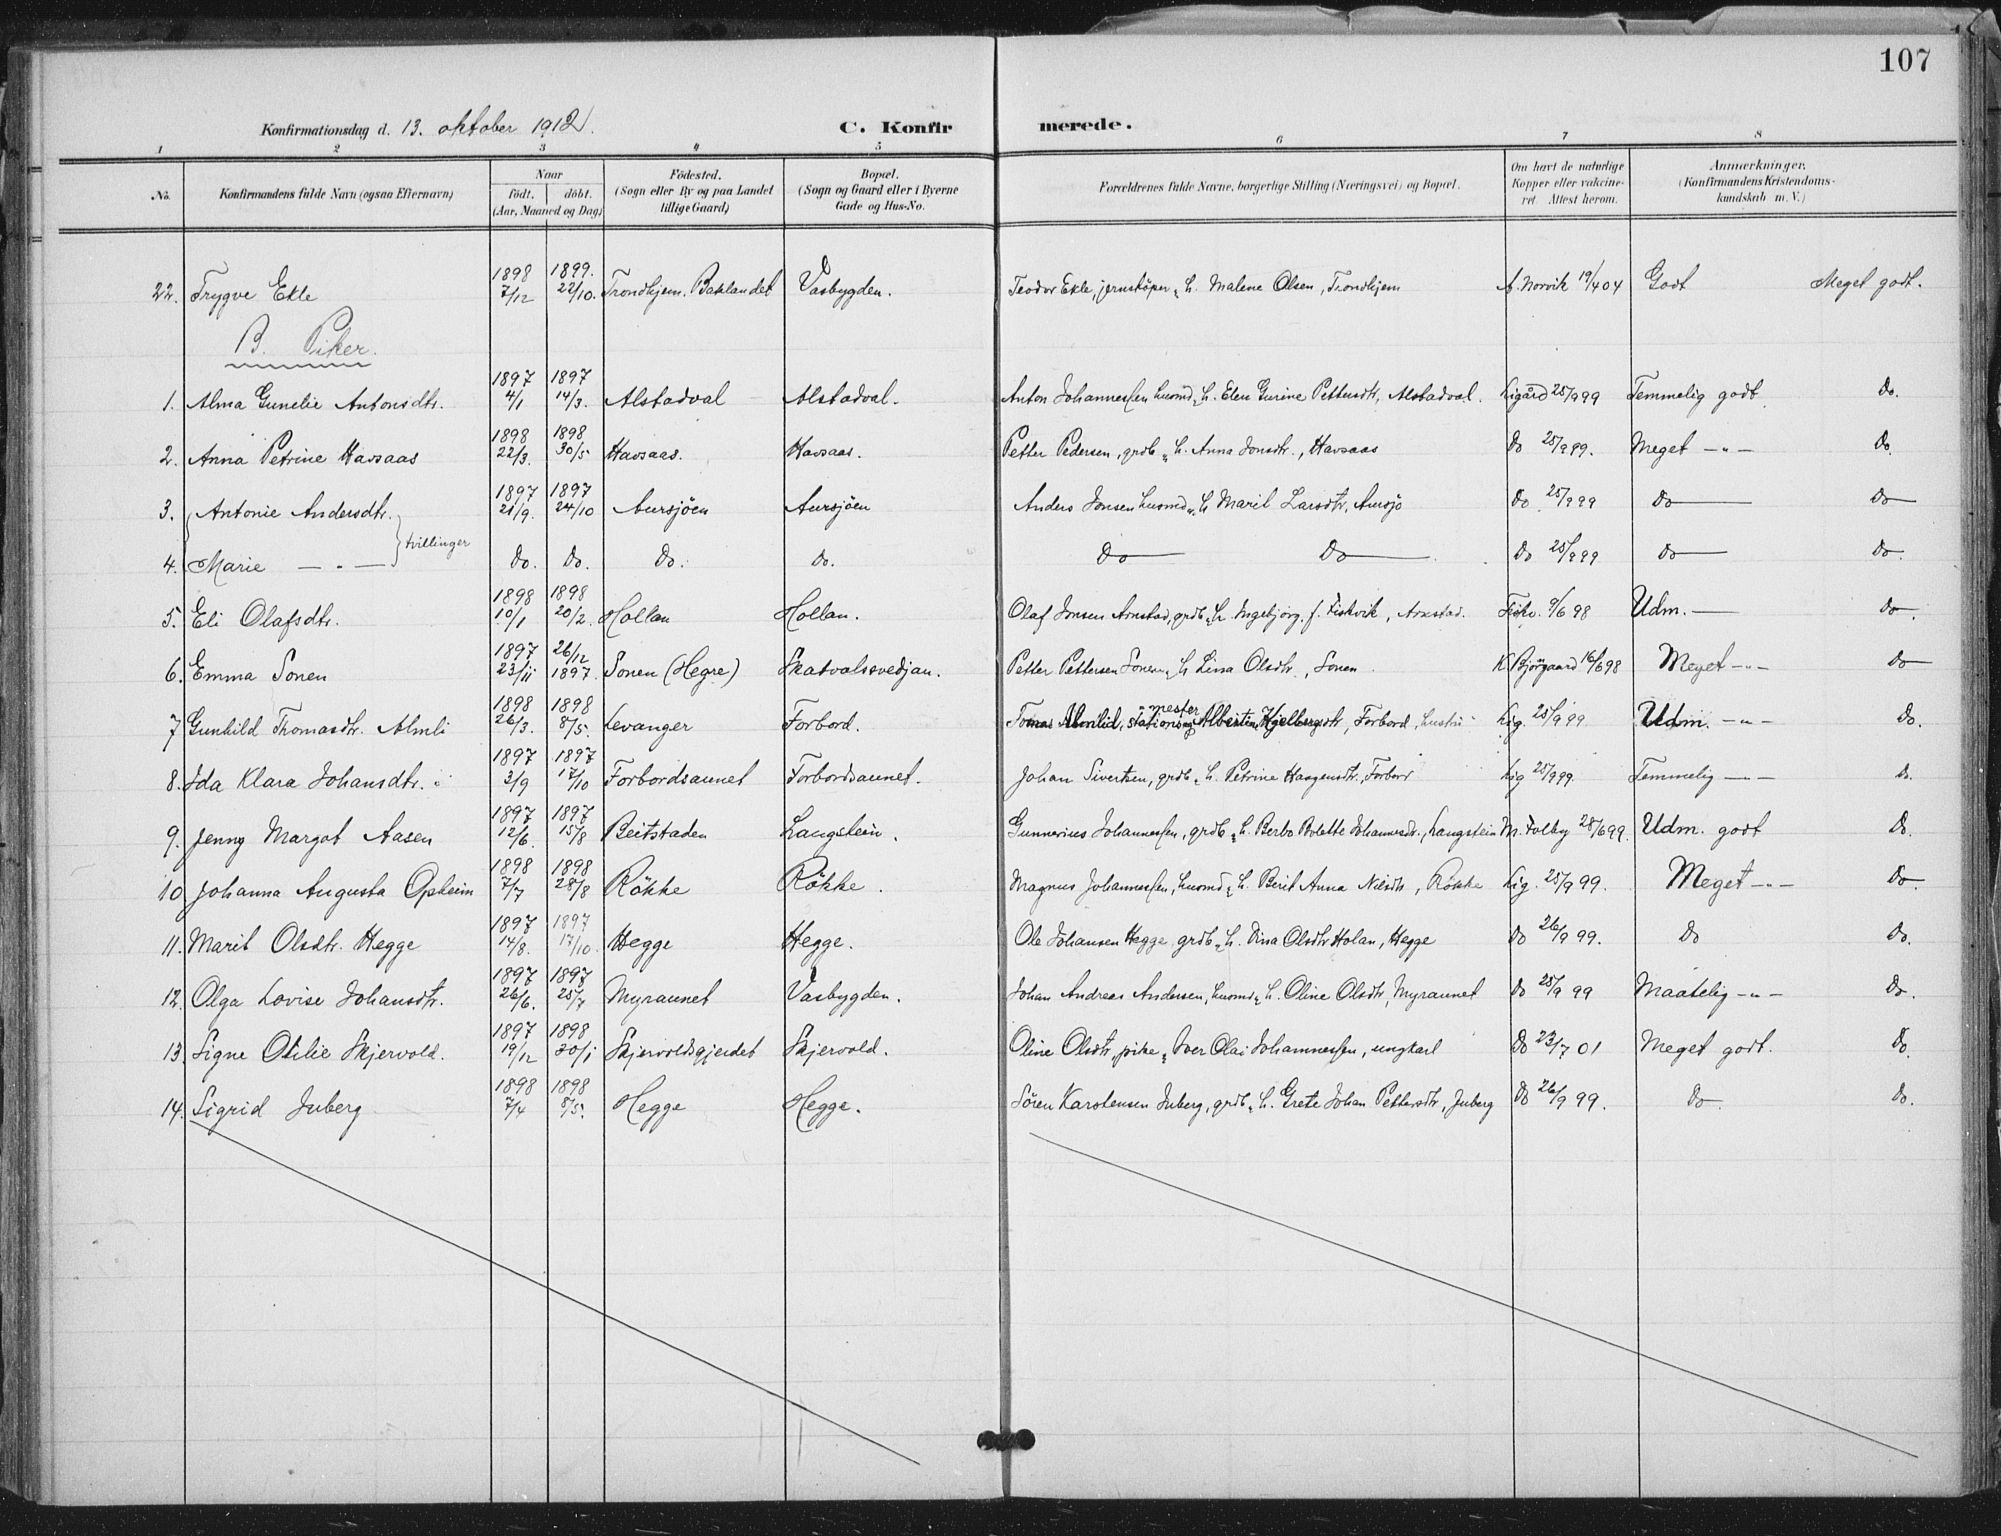 107
Konfirmationsdag d. 13. oktober 1912. C. Konfirmerede.
1 2 3 4 5 6 7 8
No. Konfirmandens fulde Navn (ogsaa Efternavn) Naar født. døbt. (Aar, Maaned og Dag) Fødested. (Sogn eller By og paa Landet tillige Gaard) Bopæl. (Sogn og Gaard eller i Byerne Gade og Hus-No. Forældrenes fulde Navne, borgerlige Stilling (Næringsvei) og Bopæl. Om havt de naturlige Kopper eller vakcineret. Attest herom. Anmærkninger. (Konfirmandens Kristendomskundskab m. V.)
22. Trygve Ekle 1898 7/12 1899. 22/10. Trondhjem. Baklandet Vasbygden. Teodor Ekle, jernstöper, " h. Malene Olsen, Trondhjem A. Norvik 19/4 04 Godt Meget godt.
B. Piker.
1. Alma Gunelie Antonsdtr. 1897 4/1 1897 14/3. Alstadval Alstadval. Anton Johannessen husmd. " h. Elen Gurine Pettersdtr, Alstadval. Ligård 25/9 99 Temmelig godt Do.
2. Anna Petrine Havsaas 1898 22/3. 1898 30/5 Havsaas. Havsaas. Petter Pedersen, grdb. " h. Anna Jonsdtr., Havsaas Do 25/9 99. Meget -"- Do.
3. Antonie Andersdtr. 1897 21/9. 1897 24/10 Aursjöen Aursjöen Anders Jonsen husmd. " h Marit Larsdtr, Aursjö Do 25/9 99 Do Do
tvillinger
4. Marie -"- Do. Do. Do. Do. Do Do Do 25/9 99 Do Do.
5. Eli Olafsdtr. 1898 10/1 1898 20/2. Hollan Hollan. Olaf Jonsen Arnstad, grdb. " h. Ingebjörg f. Fiskvik, Arnstad. Fiskv. 9/6 98 Udm. Do
6. Emma Sonen 1897 23/11 26/12 1897. Sonen (Hegre) Skatvalssvedjan. Petter Pettersen Sonen " h Lina Olsdtr., Sonen K. Bjørgaard 16/6 98 Meget -"- Do
7 Gunhild Thomasdtr. Almli 1898 26/3. 1898 8/5. Levanger Forbord. Tomas Almlid, stationsmester og Albertine Kjelbergsdtr, Forbord, hustru Lig. 25/9 99 Udm. -"- Do.
8. Ida Klara Johansdtr. 1897 3/9 1897 17/10 Forbordsaunet Forbordsaunet. Johan Sivertsen, grdb. " h. Petrine Haagensdtr. Forbord Lig 25/9 99. Temmelig -"- Do.
9. Jenny Margot Aasen 1897 12/6. 1897 15/8 Beitstaden Langstein. Gunnerius Johannessen, grdb. " h. Berbo Bolette Johannesdtr., Langstein M. Folby 28/6 99. Udm. godt Do.
10 Johanna Augusta Opheim 1898 7/7 1898 28/8 Rökke Rökke. Magnus Johannessen, husmd. " h. Berit Anna Nilsdtr, Rökke Lig. 25/9 99. Meget -"- Do.
11. Marit Olsdtr. Hegge 1897 14/8. 1897 17/10. Hegge Hegge. Ole Johansen Hegge grdb. " h. Dina Olsdtr Holan, Hegge Do 26/9 99. Do Do.
12. Olga Lovise Johansdtr. 1897 26/6. 1897 25/7 Myraunet Vasbygden. Johan Andreas Andersen, husmd. " h. Oline Olsdtr, Myraunet Do 25/9 99 Maatelig -"- Do.
13. Signe Otilie Skjervold. 1897 19/12 1898 30/1 Skjervoldsgjerdet Skjervold. Oline Olsdtr, pike " Iver Olai Johannessen, ungkarl Do 23/7 01 Meget godt. Do.
14. Sigrid Juberg 1898 7/4 1898 8/5. Hegge Hegge. Sören Karstensen Juberg, grdb. " h. Grete Johan Pettersdtr, Juberg Do 26/9 99. Do. Do.